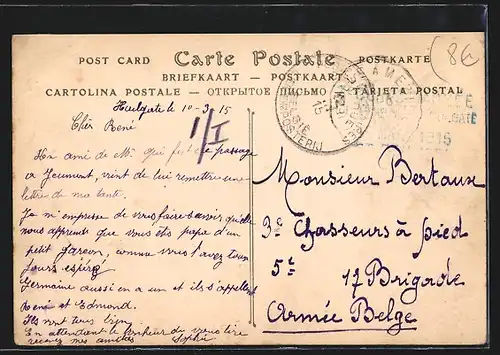 POST CARD Carte Postale POSTKARTE
BRIEFKAART — POSTKAART
CARTOLINA POSTALE — ОТКРЫТОЕ ПИСЬМО — TARJETA POSTAL
86
Hulgate le 10-3-15
Cher René
1/I
Un ami de Mr. qui fut de passage
a Jeumont, vient de lui remettre une
lettre de ma tante.
Je m'empresse de vous faire savoir qu'elle
nous apprends que vous êtes papa d'un
petit garçon, comme vous l'avez tou
jours espéré
Germaine aussi en a un et ils s'appellent
René et Edmond.
Ils vont tous bien
En attendant le bonheur de vous lire
recevez mes amitiés Sophie
Monsieur Bertaux
3e Chasseurs à pied
5e 17 Brigade
Armée Belge
POSTERIJ
15
1915